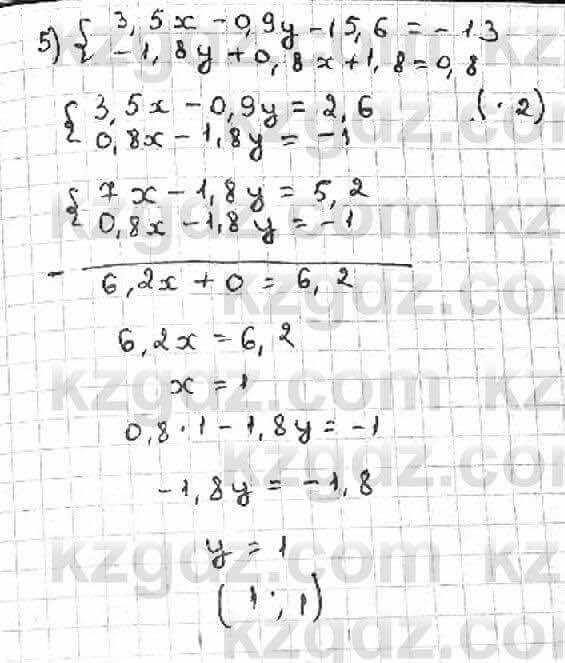 5) { 3,5x - 0,9y - 15,6 = -13
-1,8y + 0,8x + 1,8 = 0,8
{ 3,5x - 0,9y = 2,6 (·2)
0,8x - 1,8y = -1
{ 7x - 1,8y = 5,2
0,8x - 1,8y = -1
-
6,2x + 0 = 6,2
6,2x = 6,2
x = 1
0,8·1 - 1,8y = -1
-1,8y = -1,8
y = 1
(1;1)
kzgdz.com
kzgdz.com
kzgdz.com
kzgdz.com
kzgdz.com
kzgdz.com